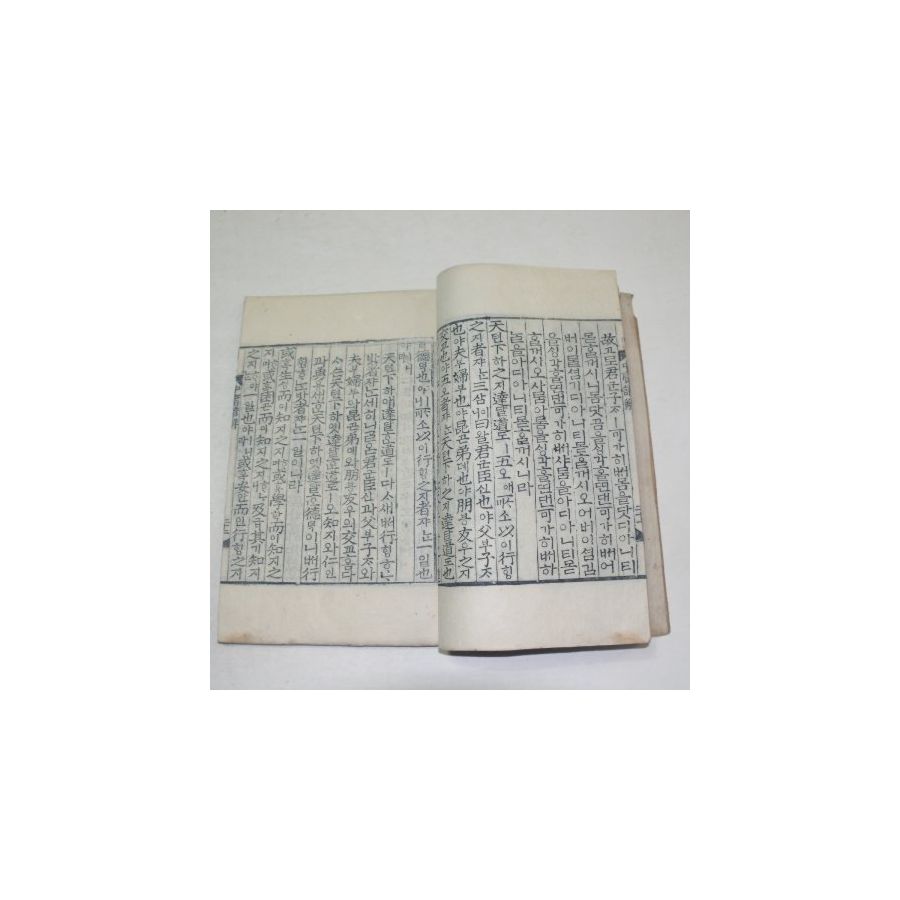 故고로君군子ᄌᆞㅣ可가히ᄡᅥ몸을닷디아니티
몯ᄒᆞᆯ꺼시니몸닷금을ᄉᆡᆼ각홀띤댄可가히ᄡᅥ어
버이를셤기디아니티몯ᄒᆞᆯ꺼시오어버이셤김
을ᄉᆡᆼ각홀띤댄可가히ᄡᅥ사ᄅᆞᆷ을아디아니티몯
ᄒᆞᆯ꺼시오사ᄅᆞᆷ아롬을ᄉᆡᆼ각홀띤댄可가히ᄡᅥ하
ᄂᆞᆯ을아디아니티몯ᄒᆞᆯ꺼시니라
天텬下하之지達달道도ㅣ五오애所소以이行ᄒᆡᆼ
之지者쟈ᄂᆞᆫ三삼이니曰왈君군臣신也야父부子ᄌᆞ
也야夫부婦부也야昆곤弟뎨也야朋붕友우之지
交교也야五오者쟈ᄂᆞᆫ天텬下하之지達달道도也
德덕也야ㅣ니所소以이行ᄒᆡᆼ之지者쟈ᄂᆞᆫ一일也
天텬下하애達달ᄒᆞᆫ道도ㅣ다ᄉᆞ새ᄡᅥ行ᄒᆡᆼᄒᆞᄂᆞᆫ
밧者쟈ᄂᆞᆫ세히니ᄀᆞᆯ온君군臣신과父부子ᄌᆞ와
夫부婦부와昆곤弟뎨와朋붕友우의交교ㅣ다
ᄉᆞᆺ은天텬下하엣達달ᄒᆞᆫ道도ㅣ오知지와仁인
과勇용세흔天텬下하엣達달ᄒᆞᆫ德덕이니ᄡᅥ行
ᄒᆡᆼᄒᆞᄂᆞᆫ밧者쟈ᄂᆞᆫ一일이니라
或혹生ᄉᆡᆼ而이知지之지ᄒᆞ며或혹學ᄒᆞᆨ而이知지之
지ᄒᆞ며或혹困곤而이知지之지ᄒᆞᄂᆞ니及급其기知지
之지ᄒᆞ야ᄂᆞᆫ一일也야ㅣ니라或혹安안而이行ᄒᆡᆼ之지